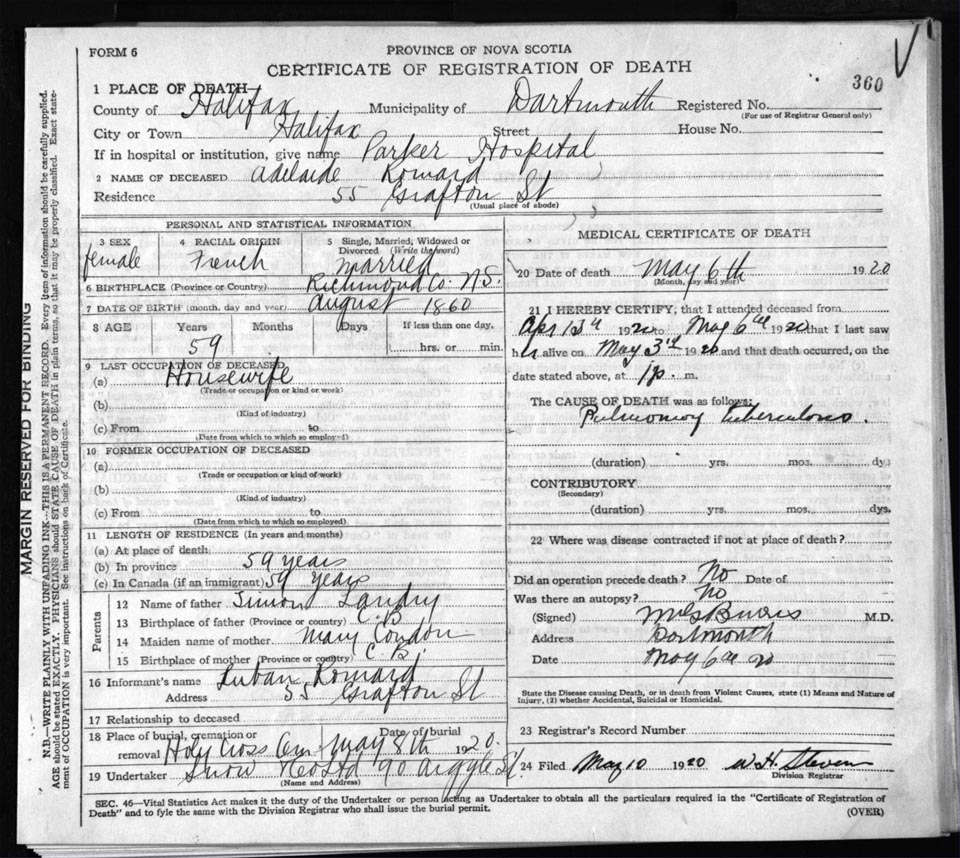 FORM 6
PROVINCE OF NOVA SCOTIA
CERTIFICATE OF REGISTRATION OF DEATH
360
1 PLACE OF DEATH
County of Halifax Municipality of Dartmouth Registered No.
(For use of Registrar General only)
City or Town Halifax Street House No.
If in hospital or institution, give name Parker Hospital
2 NAME OF DECEASED Adelaide Romard
Residence 55 Grafton St
(Usual place of abode)
PERSONAL AND STATISTICAL INFORMATION
3 SEX female
4 RACIAL ORIGIN French
5 Single, Married, Widowed or Divorced (Write the word) Married
6 BIRTHPLACE (Province or Country) Richmond Co. N.S.
7 DATE OF BIRTH (month, day and year) August 1860
8 AGE Years Months Days If less than one day,
59 hrs. or min.
9 LAST OCCUPATION OF DECEASED
(a) Housewife
(Trade or occupation or kind or work)
(b)
(Kind of industry)
(c) From to
(Date from which to which so employed)
10 FORMER OCCUPATION OF DECEASED
(a)
(Trade or occupation or kind of work)
(b)
(Kind of industry)
(c) From to
(Date from which to which so employed)
11 LENGTH OF RESIDENCE (In years and months)
(a) At place of death
(b) In province 59 years
(c) In Canada (if an immigrant) 59 years
Parents
12 Name of father Simon Landry
13 Birthplace of father (Province or country) C.B
14 Maiden name of mother Mary Condon
15 Birthplace of mother (Province or country) C.B.
16 Informant's name Luban Romard
Address 55 Grafton St
17 Relationship to deceased
18 Place of burial, cremation or removal Holy Cross Cem Date of burial May 8th 1920.
19 Undertaker Snow & Co Ltd 90 Argyle St.
(Name and Address)
MEDICAL CERTIFICATE OF DEATH
20 Date of death May 6th 1920
(Month, day and year)
21 I HEREBY CERTIFY, that I attended deceased from
1920 to May 6th 1920 that I last saw
her alive on May 3rd 1920 and that death occurred, on the
date stated above, at 1 p. m.
The CAUSE OF DEATH was as follows:
Pulmonary Tuberculosis.
(duration) yrs. mos. dys
CONTRIBUTORY
(Secondary)
(duration) yrs. mos. dys.
22 Where was disease contracted if not at place of death?
Did an operation precede death? No Date of
Was there an autopsy? No
(Signed) Burris M.D.
Address Dartmouth
Date May 6th 20
State the Disease causing Death, or in death from Violent Causes, state (1) Means and Nature of
Injury, (2) whether Accidental, Suicidal or Homicidal.
23 Registrar's Record Number
24 Filed May 10 1920 W.H. Steven
Division Registrar
SEC. 46—Vital Statistics Act makes it the duty of the Undertaker or person acting as Undertaker to obtain all the particulars required in the "Certificate of Registration of
Death" and to fyle the same with the Division Registrar who shall issue the burial permit.
(OVER)
MARGIN RESERVED FOR BINDING
N.B.—WRITE PLAINLY WITH UNFADING INK—THIS IS A PERMANENT RECORD. Every item of information should be carefully supplied.
AGE should be stated EXACTLY. PHYSICIANS should STATE CAUSE OF DEATH in plain terms, so that it may be properly classified. Exact state-
ment of OCCUPATION is very important. See instructions on back of Certificate.